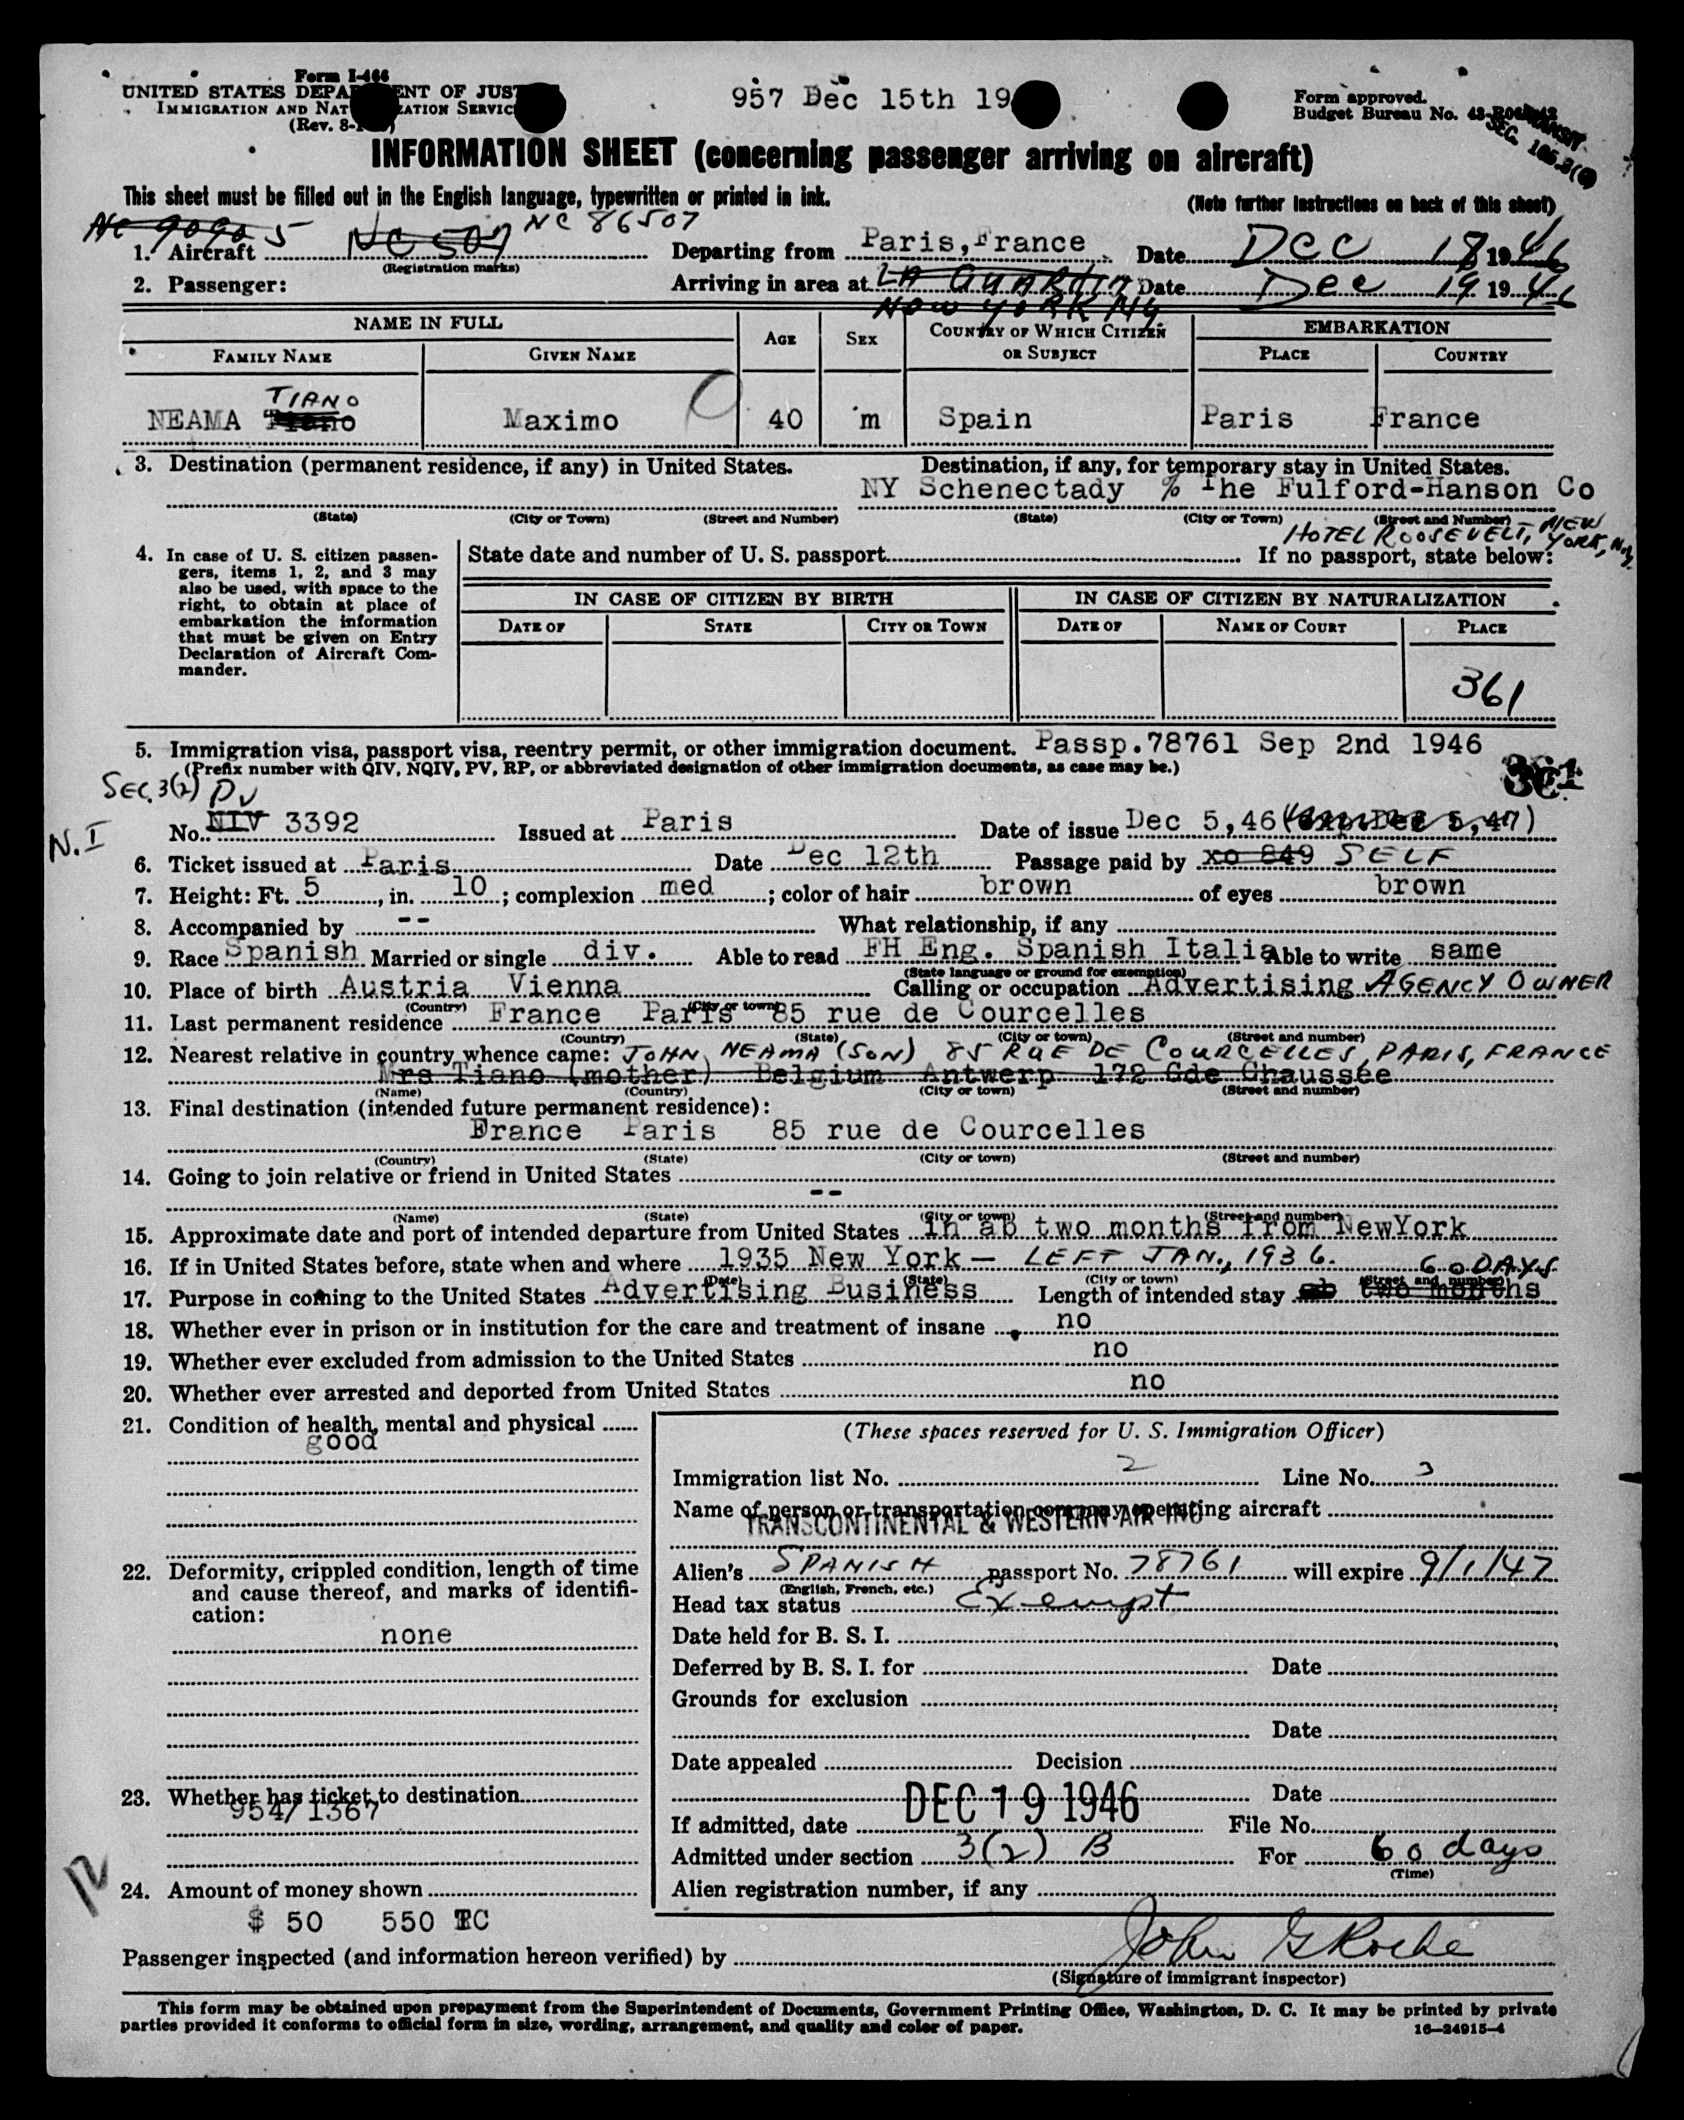 Form I-466
UNITED STATES DEPA ENT OF JUS
IMMIGRATION AND NAT ZATION SERVIC
(Rev. 8-
957 Dec 15th 19
Form approved.
Budget Bureau No. 43-
TRANSIT
SEC. 165.3(
INFORMATION SHEET (concerning passenger arriving on aircraft)
This sheet must be filled out in the English language, typewritten or printed in ink.
(Note further instructions on back of this sheet)
NC 90905 NC 507 NC 86507
1. Aircraft
(Registration marks)
Departing from Paris,France Date DEC 18 1946
2. Passenger:
Arriving in area at LA GUARDIA Date Dec 19 1946
NEW YORK NY
NAME IN FULL
FAMILY NAME GIVEN NAME AGE SEX COUNTRY OF WHICH CITIZEN OR SUBJECT EMBARKATION
PLACE COUNTRY
TIANO
NEAMA Tiano Maximo 40 m Spain Paris France
3. Destination (permanent residence, if any) in United States. Destination, if any, for temporary stay in United States.
NY Schenectady % The Fulford-Hanson Co
(State) (City or Town) (Street and Number) (State) (City or Town) (Street and Number)
HOTEL ROOSEVELT, NEW YORK, N.Y.
4. In case of U. S. citizen passengers, items 1, 2, and 3 may also be used, with space to the right, to obtain at place of embarkation the information that must be given on Entry Declaration of Aircraft Commander.
State date and number of U. S. passport If no passport, state below:
IN CASE OF CITIZEN BY BIRTH IN CASE OF CITIZEN BY NATURALIZATION
DATE OF STATE CITY OR TOWN DATE OF NAME OF COURT PLACE
361
5. Immigration visa, passport visa, reentry permit, or other immigration document. Passp.78761 Sep 2nd 1946
(Prefix number with QIV, NQIV, PV, RP, or abbreviated designation of other immigration documents, as case may be.)
361
SEC. 3(2) PV
N.I
No. NIV 3392 Issued at Paris Date of issue Dec 5,46(exp.Dec 5,47)
6. Ticket issued at Paris Date Dec 12th Passage paid by xo 849 SELF
7. Height: Ft. 5, in. 10; complexion med; color of hair brown of eyes brown
8. Accompanied by -- What relationship, if any
9. Race Spanish Married or single div. Able to read FH Eng. Spanish Italia Able to write same
(State language or ground for exemption)
10. Place of birth Austria Vienna Calling or occupation Advertising AGENCY OWNER
(Country) (City or town)
11. Last permanent residence France Paris 85 rue de Courcelles
(Country) (State) (City or town) (Street and number)
12. Nearest relative in country whence came: JOHN NEAMA (SON) 85 RUE DE COURCELLES, PARIS, FRANCE
Mrs Tiano (mother) Belgium Antwerp 172 Gde Chaussée
(Name) (Country) (City or town) (Street and number)
13. Final destination (intended future permanent residence):
France Paris 85 rue de Courcelles
(Country) (State) (City or town) (Street and number)
14. Going to join relative or friend in United States
--
(Name) (State) (City or town) (Street and number)
15. Approximate date and port of intended departure from United States in ab two months from NewYork
16. If in United States before, state when and where 1935 New York — LEFT JAN., 1936.
(Date) (State) (City or town) (Street and number)
60 DAYS
17. Purpose in coming to the United States Advertising Business Length of intended stay ab two months
18. Whether ever in prison or in institution for the care and treatment of insane no
19. Whether ever excluded from admission to the United States no
20. Whether ever arrested and deported from United States no
21. Condition of health, mental and physical
good
22. Deformity, crippled condition, length of time and cause thereof, and marks of identification:
none
23. Whether has ticket to destination
954/1367
24. Amount of money shown
$ 50 550 TC
12
(These spaces reserved for U. S. Immigration Officer)
Immigration list No. 2 Line No. 3
Name of person or transportation company operating aircraft
TRANSCONTINENTAL & WESTERN AIR INC
Alien's SPANISH passport No. 78761 will expire 9/1/47
(English, French, etc.)
Head tax status Exempt
Date held for B. S. I.
Deferred by B. S. I. for Date
Grounds for exclusion
Date
Date appealed Decision
Date
If admitted, date DEC 19 1946 File No.
Admitted under section 3(2) B For 60 days
(Time)
Alien registration number, if any
Passenger inspected (and information hereon verified) by John G Roche
(Signature of immigrant inspector)
This form may be obtained upon prepayment from the Superintendent of Documents, Government Printing Office, Washington, D. C. It may be printed by private
parties provided it conforms to official form in size, wording, arrangement, and quality and color of paper. 16—24915-4